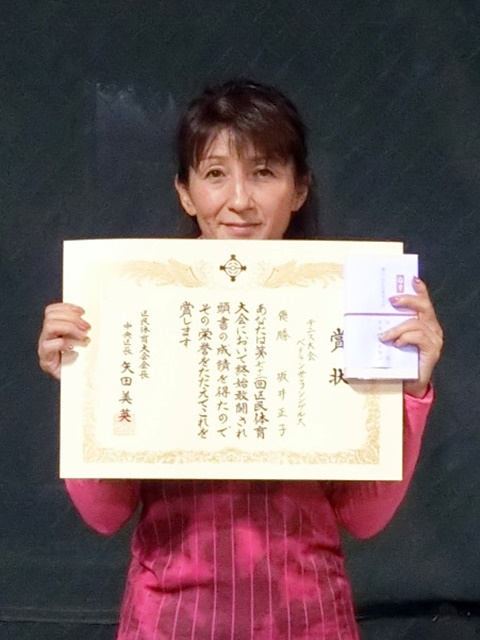 賞状
テニス大会
ベテラン女子シングルス
優勝 坂井正子
あなたは第七十二回区民体育
大会において終始敢闘され
頭書の成績を得たので
その栄誉をたたえてこれを
賞します
区民体育大会会長
中央区長 矢田美英